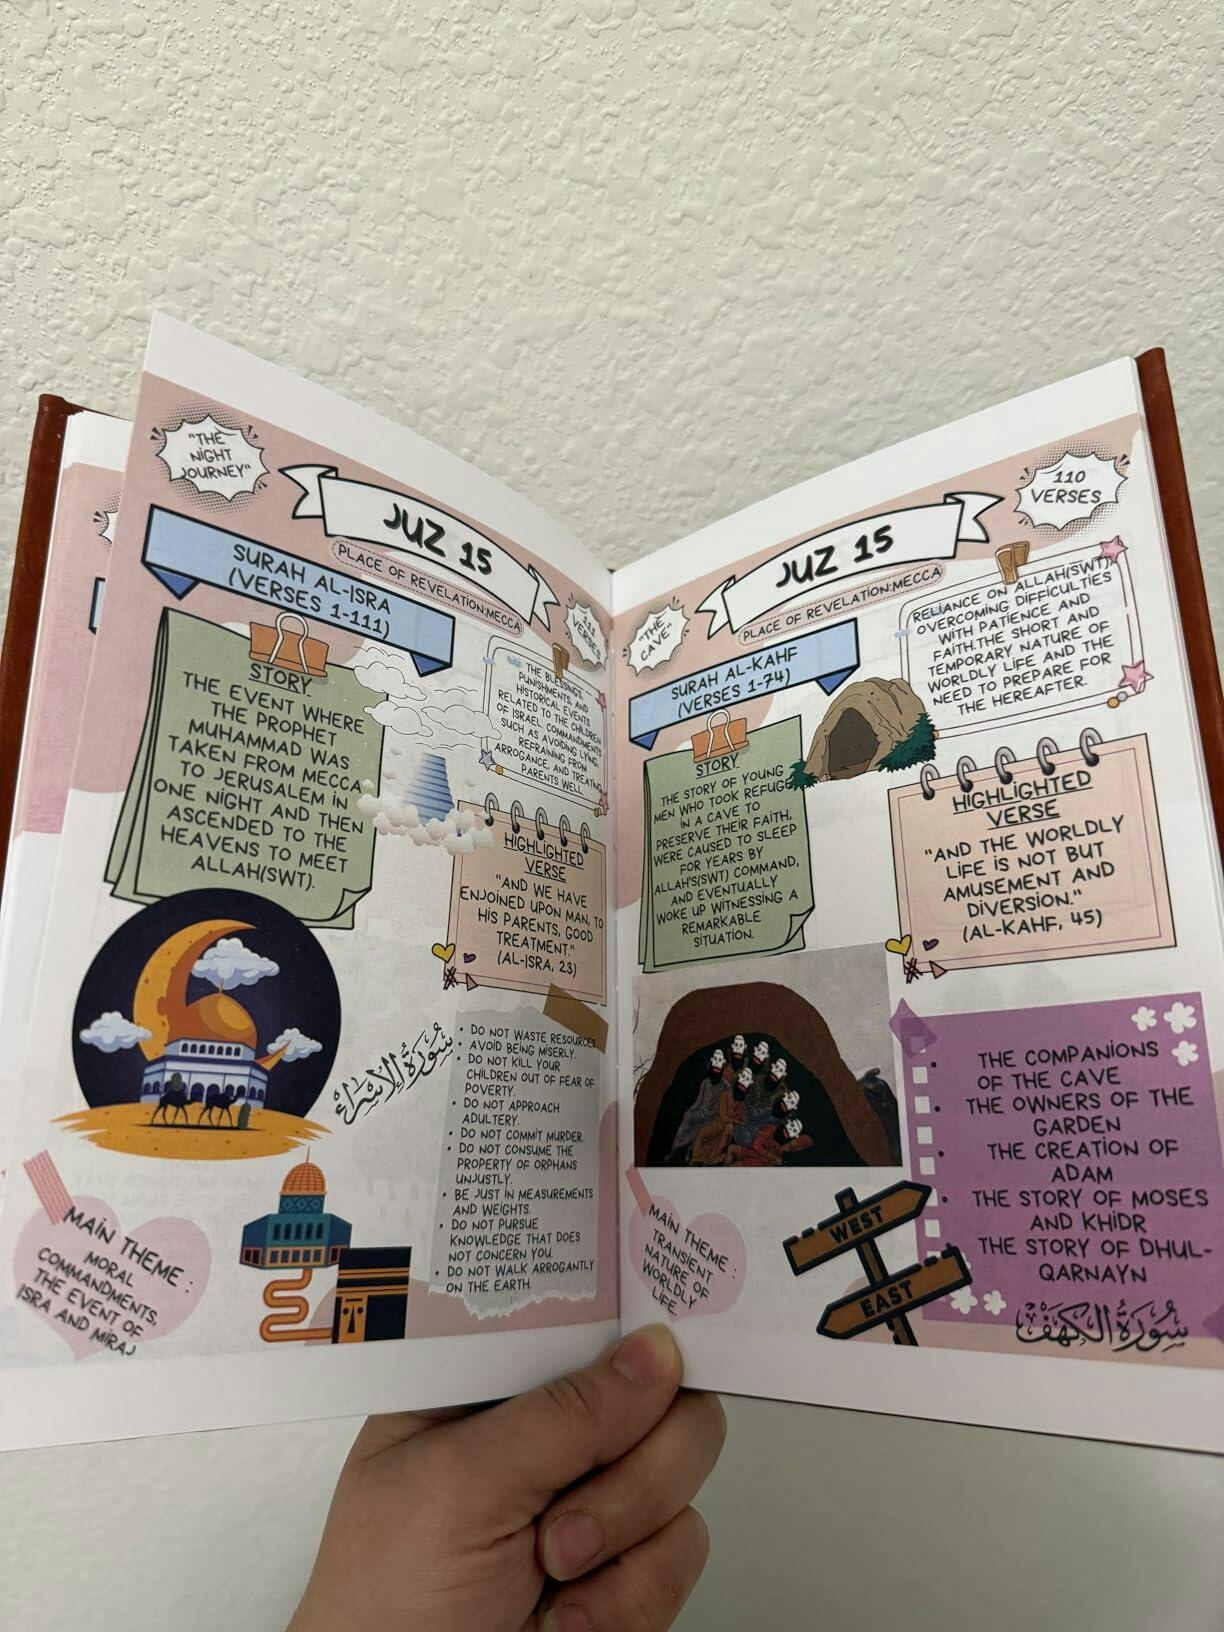 "THE
NIGHT
JOURNEY"
JUZ 15
PLACE OF REVELATION:MECCA
SURAH AL-ISRA
(VERSES 1-111)
111
VERSES
STORY
THE EVENT WHERE
THE PROPHET
MUHAMMAD WAS
TAKEN FROM MECCA
TO JERUSALEM IN
ONE NIGHT AND THEN
ASCENDED TO THE
HEAVENS TO MEET
ALLAH(SWT).
THE BLESSINGS,
PUNISHMENTS, AND
HISTORICAL EVENTS
RELATED TO THE CHILDREN
OF ISRAEL COMMANDMENTS
SUCH AS AVOIDING LYING,
REFRAINING FROM
ARROGANCE, AND TREATING
PARENTS WELL.
HIGHLIGHTED
VERSE
"AND WE HAVE
ENJOINED UPON MAN, TO
HIS PARENTS, GOOD
TREATMENT."
(AL-ISRA, 23)
سُورَةُ الإِسْرَاءِ
• DO NOT WASTE RESOURCES.
• AVOID BEING MISERLY.
• DO NOT KILL YOUR
CHILDREN OUT OF FEAR OF
POVERTY.
• DO NOT APPROACH
ADULTERY.
• DO NOT COMMIT MURDER.
• DO NOT CONSUME THE
PROPERTY OF ORPHANS
UNJUSTLY.
• BE JUST IN MEASUREMENTS
AND WEIGHTS.
• DO NOT PURSUE
KNOWLEDGE THAT DOES
NOT CONCERN YOU.
• DO NOT WALK ARROGANTLY
ON THE EARTH.
MAIN THEME :
MORAL
COMMANDMENTS,
THE EVENT OF
ISRA AND MIRAJ
110
VERSES
JUZ 15
PLACE OF REVELATION:MECCA
"THE
CAVE"
SURAH AL-KAHF
(VERSES 1-74)
RELIANCE ON ALLAH(SWT),
OVERCOMING DIFFICULTIES
WITH PATIENCE AND
FAITH.THE SHORT AND
TEMPORARY NATURE OF
WORLDLY LIFE AND THE
NEED TO PREPARE FOR
THE HEREAFTER.
STORY
THE STORY OF YOUNG
MEN WHO TOOK REFUGE
IN A CAVE TO
PRESERVE THEIR FAITH,
WERE CAUSED TO SLEEP
FOR YEARS BY
ALLAH'S(SWT) COMMAND,
AND EVENTUALLY
WOKE UP WITNESSING A
REMARKABLE
SITUATION.
HIGHLIGHTED
VERSE
"AND THE WORLDLY
LIFE IS NOT BUT
AMUSEMENT AND
DIVERSION."
(AL-KAHF, 45)
• THE COMPANIONS
OF THE CAVE
• THE OWNERS OF THE
GARDEN
• THE CREATION OF
ADAM
• THE STORY OF MOSES
AND KHIDR
• THE STORY OF DHUL-
QARNAYN
MAIN THEME :
TRANSIENT
NATURE OF
WORLDLY
LIFE.
WEST
EAST
سُورَةُ الكَهْفِ